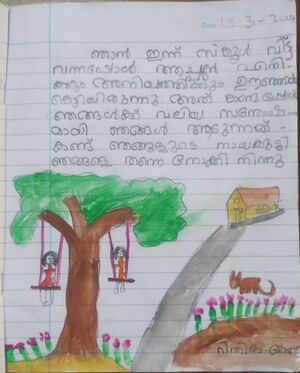 Date 18-3-2024
ഞാൻ ഇന്ന് സ്കൂൾ വിട്ട
വന്നപ്പോൾ അച്ഛൻ എനി-
ക്കും അനിയത്തിക്കും ഊഞ്ഞാൽ
കെട്ടിയിരുന്നു അത് കണ്ടപ്പോൾ
ഞങ്ങൾക്ക് വലിയ സന്തോഷ-
മായി ഞങ്ങൾ ആടുന്നത്-
കണ്ട് ഞങ്ങളുടെ നായകുട്ടി
ഞങ്ങളെ തന്നെ നോക്കി നിന്നു